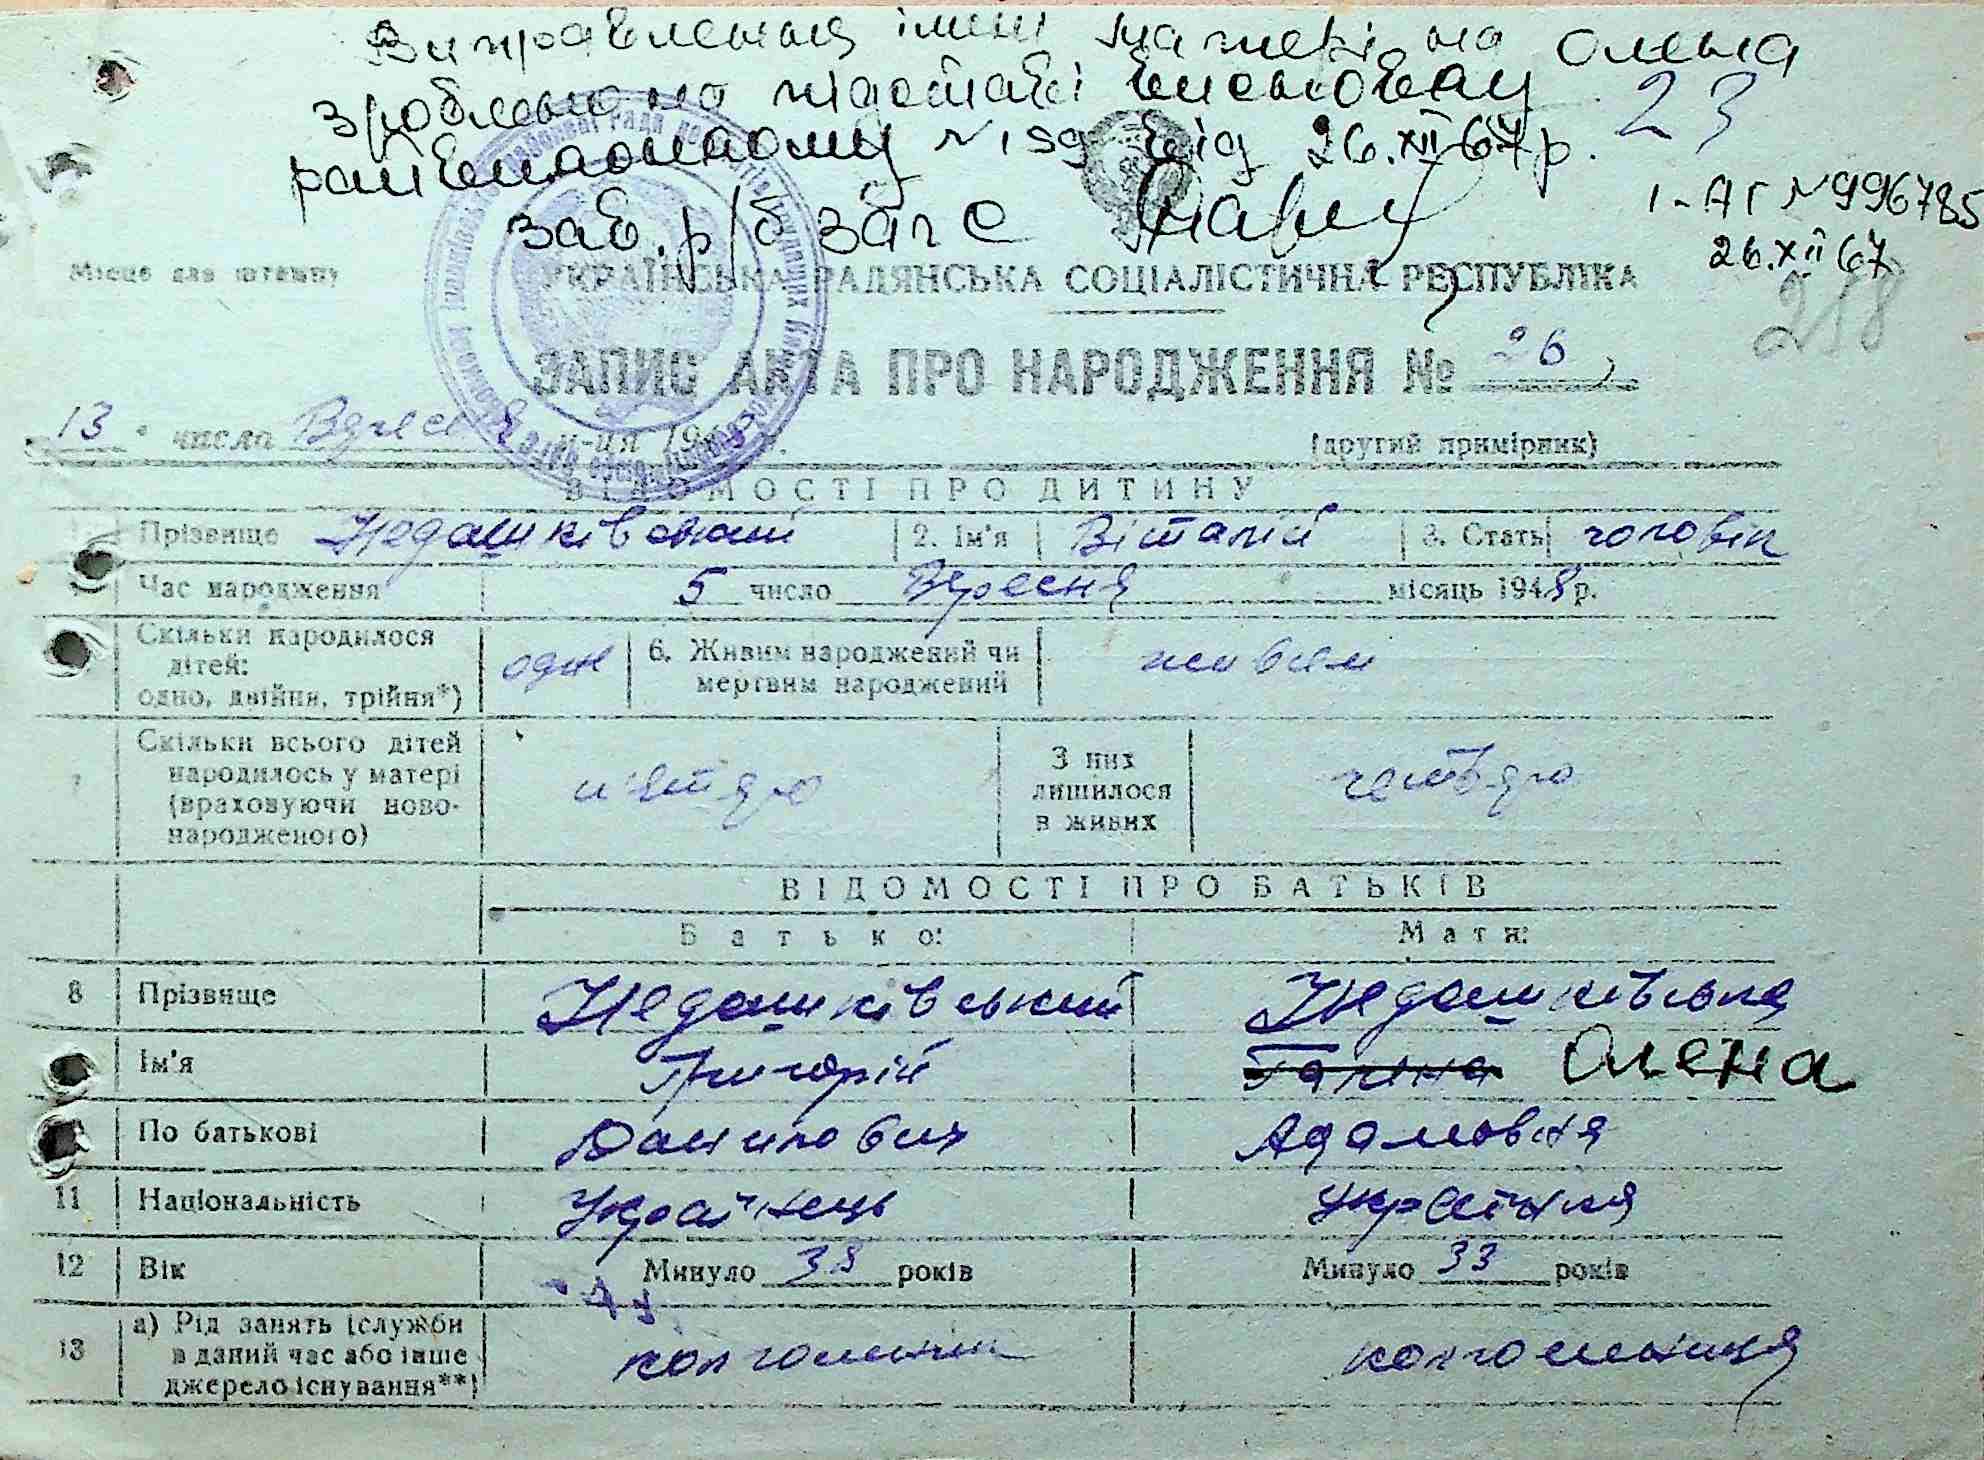 Виправлення імені матері на Олена
зроблено на підставі висновку
райвиконкому № 159 від 26.XII-67р.
23
зав. р/б загс
I-АГ № 996785
26.XII 67
Місце для штампу
УКРАЇНСЬКА РАДЯНСЬКА СОЦІАЛІСТИЧНА РЕСПУБЛІКА
258
ЗАПИС АКТА ПРО НАРОДЖЕННЯ № 26
13 числа Вересня м-ця 1948 р.
(другий примірник)
ВІДОМОСТІ ПРО ДИТИНУ
Прізвище Недашківський 2. Ім'я Віталій 3. Стать чоловік
Час народження 5 число Вересня місяць 1948 р.
Скільки народилося дітей: одно, двійня, трійня*) одне 6. Живим народжений чи мертвим народжений живим
7 Скільки всього дітей народилось у матері (враховуючи новонародженого) п'ятеро З них лишилося в живих четверо
ВІДОМОСТІ ПРО БАТЬКІВ
Батько: Мати:
8 Прізвище Недашківський Недашківська
Ім'я Григорій Галина Олена
По батькові Данилович Адамовна
11 Національність Українець Українка
12 Вік Минуло 38 років Минуло 33 років
13 а) Рід занять (служби в даний час або інше джерело існування**) колгоспник колгоспниця